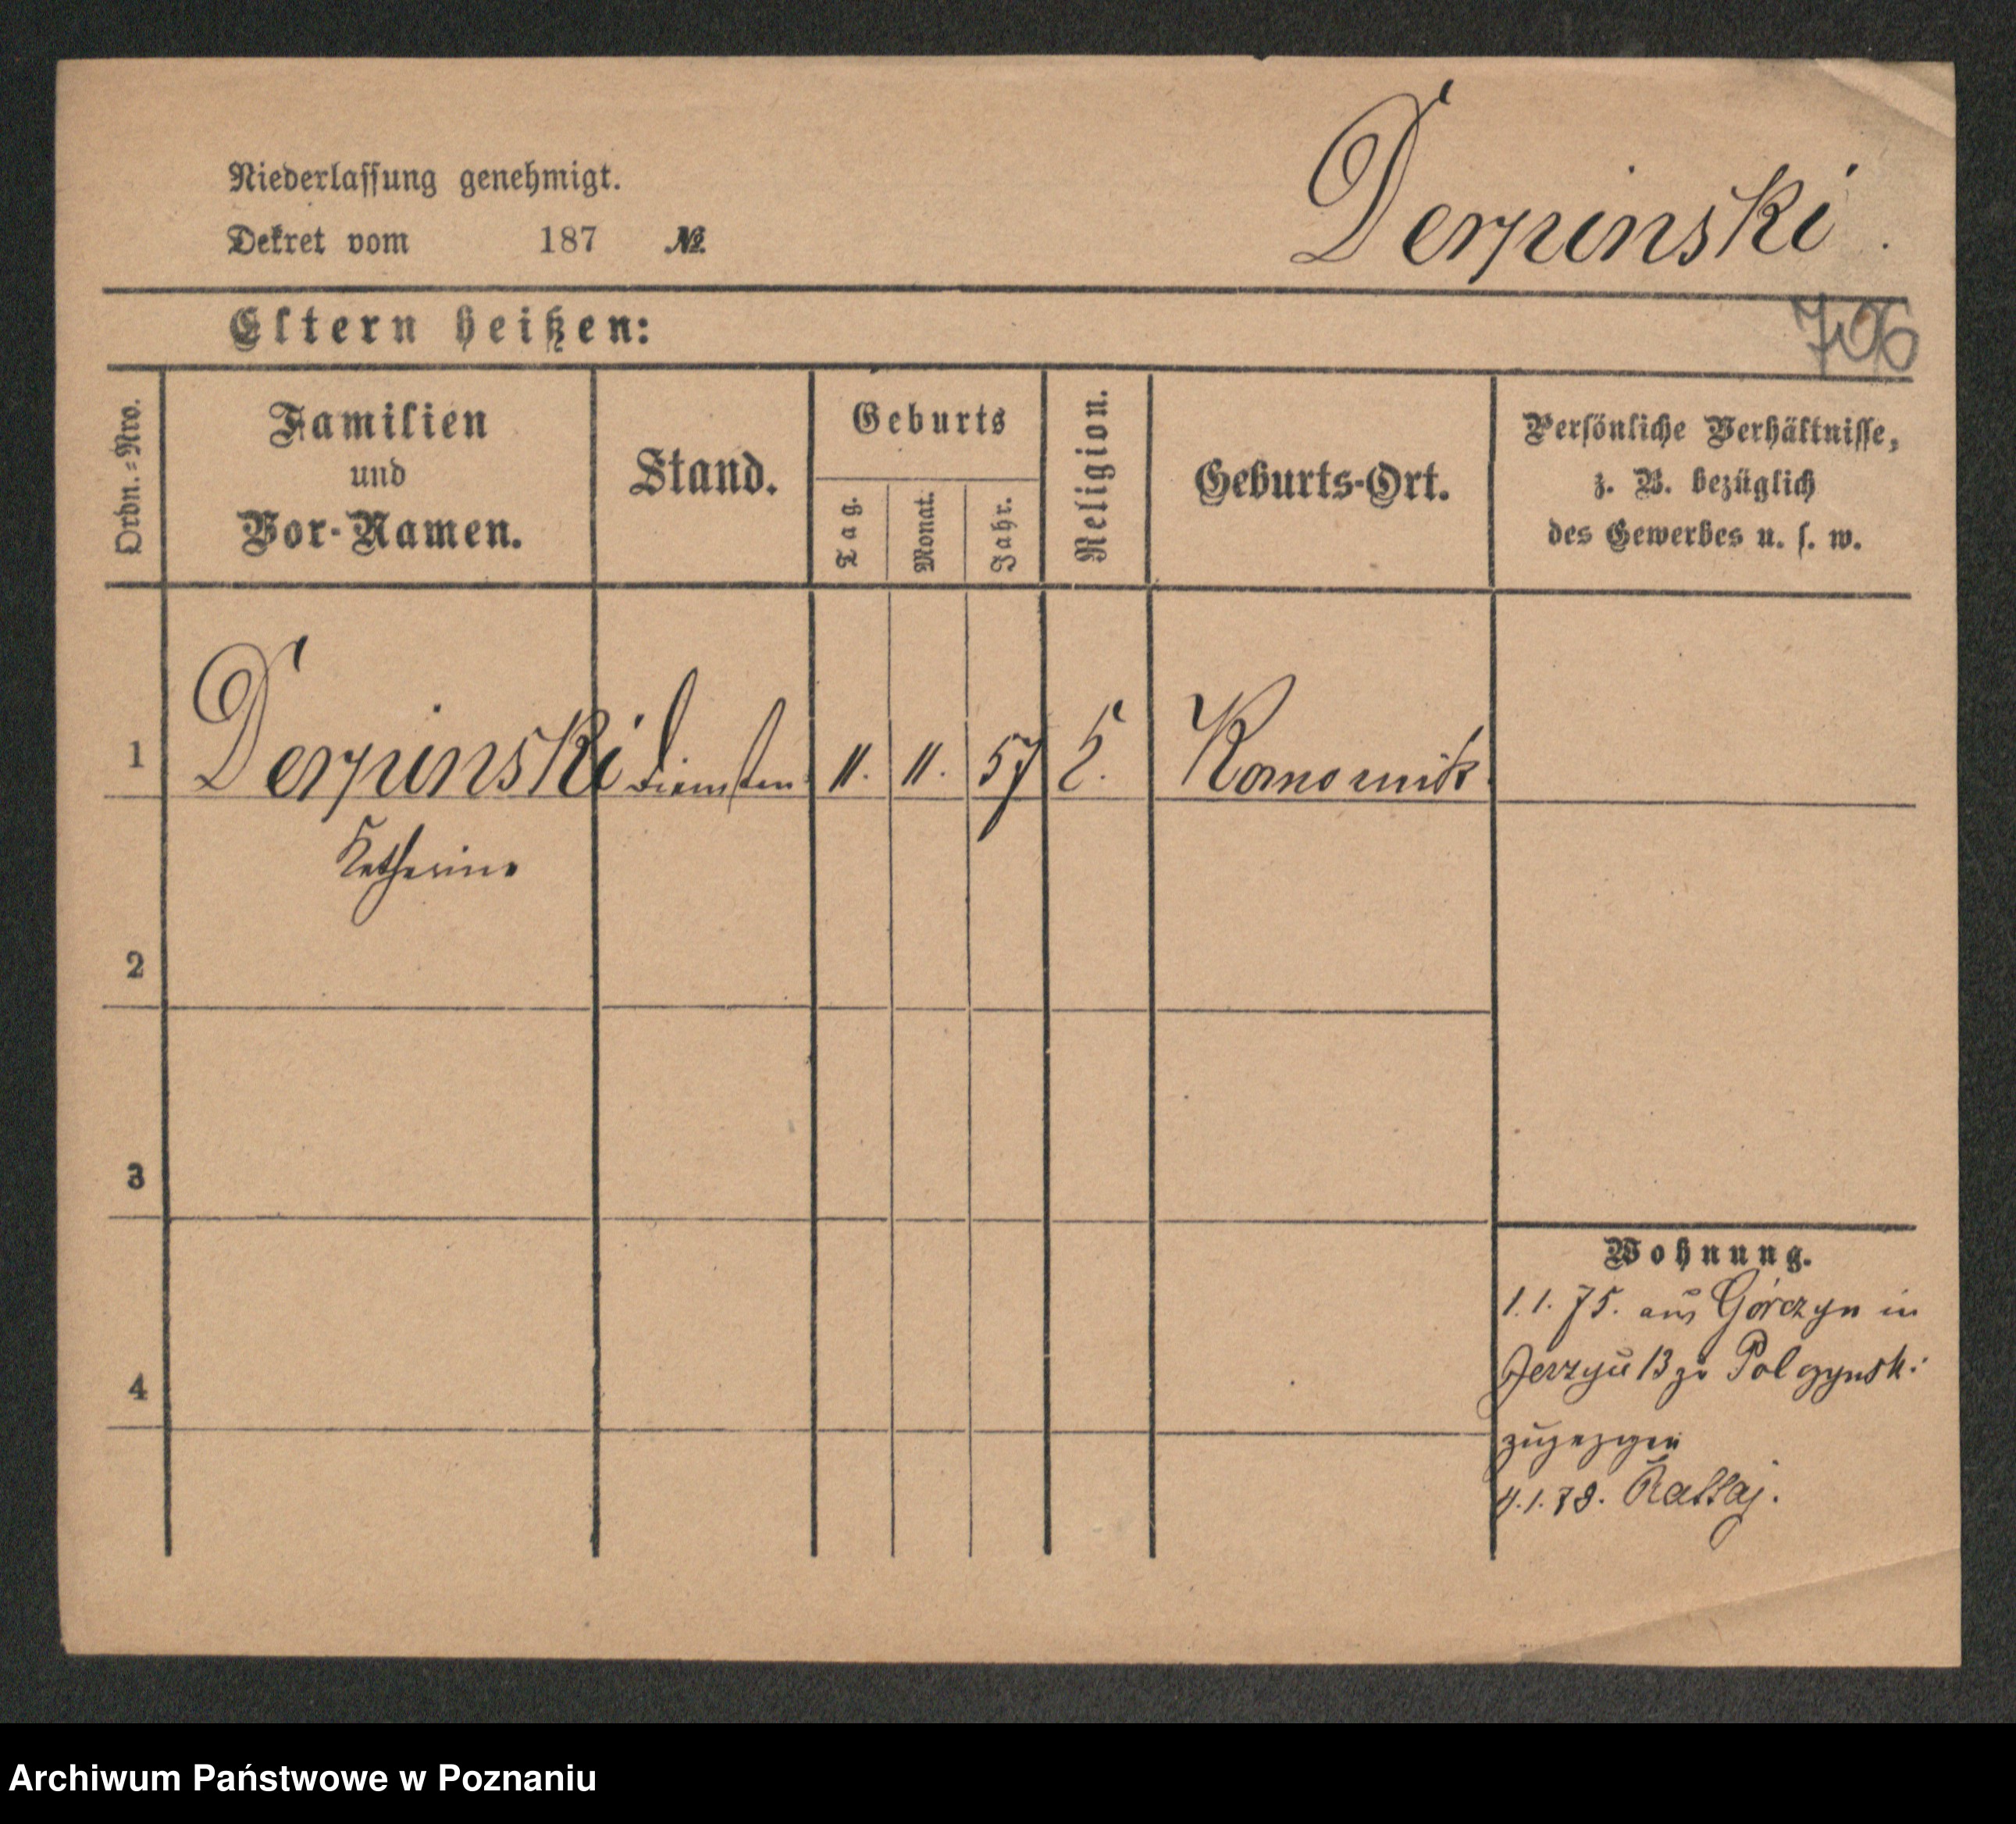 Niederlassung genehmigt.
Dekret vom 187 №
Derpinski.
Eltern heißen:
706
Ordn.-Nro.
Familien
und
Vor-Namen.
Stand.
Geburts
Tag.
Monat.
Jahr.
Religion.
Geburts-Ort.
Persönliche Verhältnisse,
z. B. bezüglich
des Gewerbes u. s. w.
1 Derpinski 11. 11. 57 Komornik
Katharina
2
3
4
Wohnung.
1.1.75. aus Górczyn in
Jerzyce 13 zu
zugezogen
4.1.78. Rattaj.
Archiwum Państwowe w Poznaniu